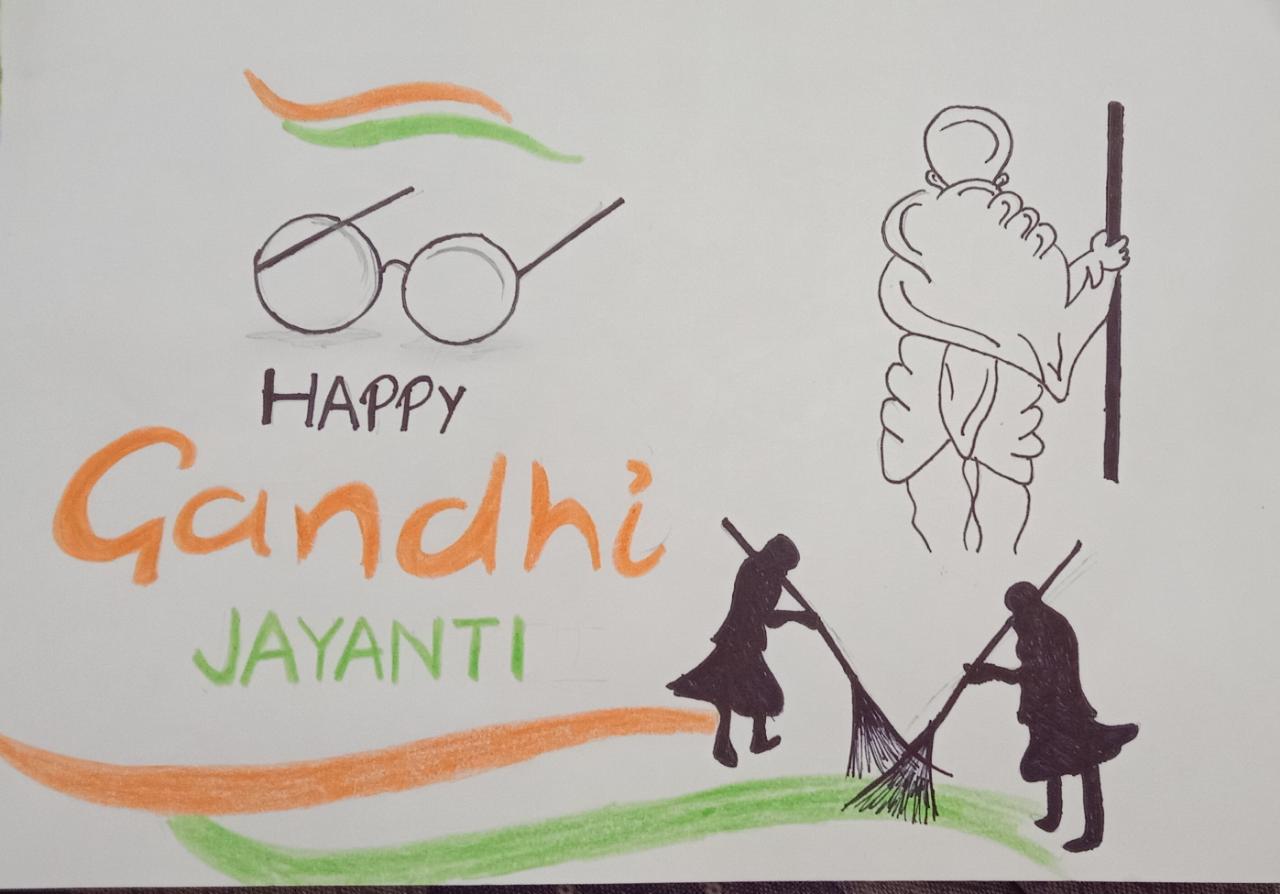 HAPPY
Gandhi
JAYANTI